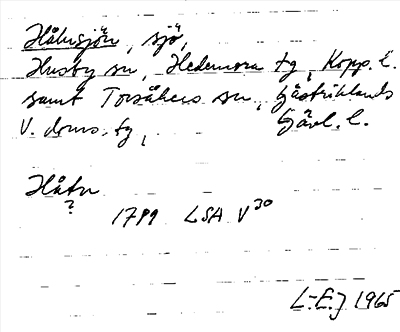 Håhnsjön, sjö,
Husby sn, Hedemora tg, Kopp. l.
samt Torsåkers sn, Gästriklands
V. doms. tg, Gävl. l.
Håhn
?
1799 LSA V 30
L-E.J 1965